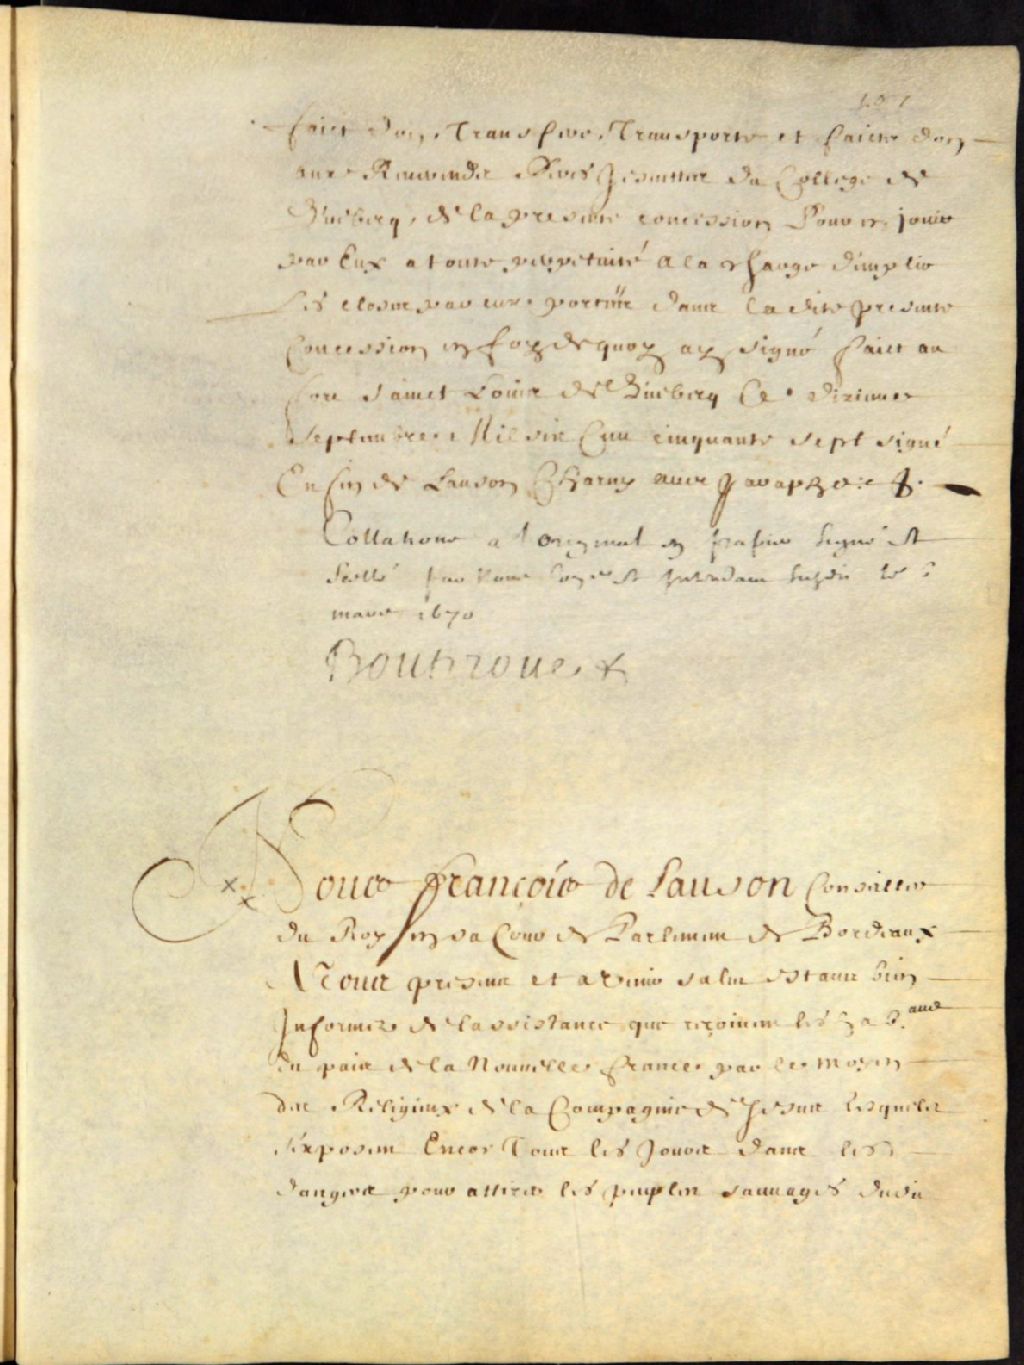 107
faict don, Transferé, Transporté et faictz don
aux Reuerendz Peres Jesuittes du College de
Quebecq, de la presente concession Pour en jouir
par Eux a toute perpetuité a la charge d'emplir
les clauses par eux portées dans la dite presente
Concession en foy de quoy ay signé faict au
fort Sainct Louis de Quebecq Ce dixiesme
Septembre Mil six Cens cinquante sept signé
En fin de Lauson Charny auec paraphe
Collationé a l'original en papier signé et
scellé par nous soye et Intendant susdit le
mars 1670
Boutroue
Nous François de Lauson Conseiller
du Roy en sa Cour de Parlement de Bordeaux
A Tous presens et a venir salut estant bien
Informez de lassistance que reçoiuent les hab.ans
du païs de la Nouuelle france par le moyen
des Religieux de la Compagnie de Jesus lesquels
s'exposent Encor Tous les Jours dans les
dangers pour attirer les peuples sauuages dudit